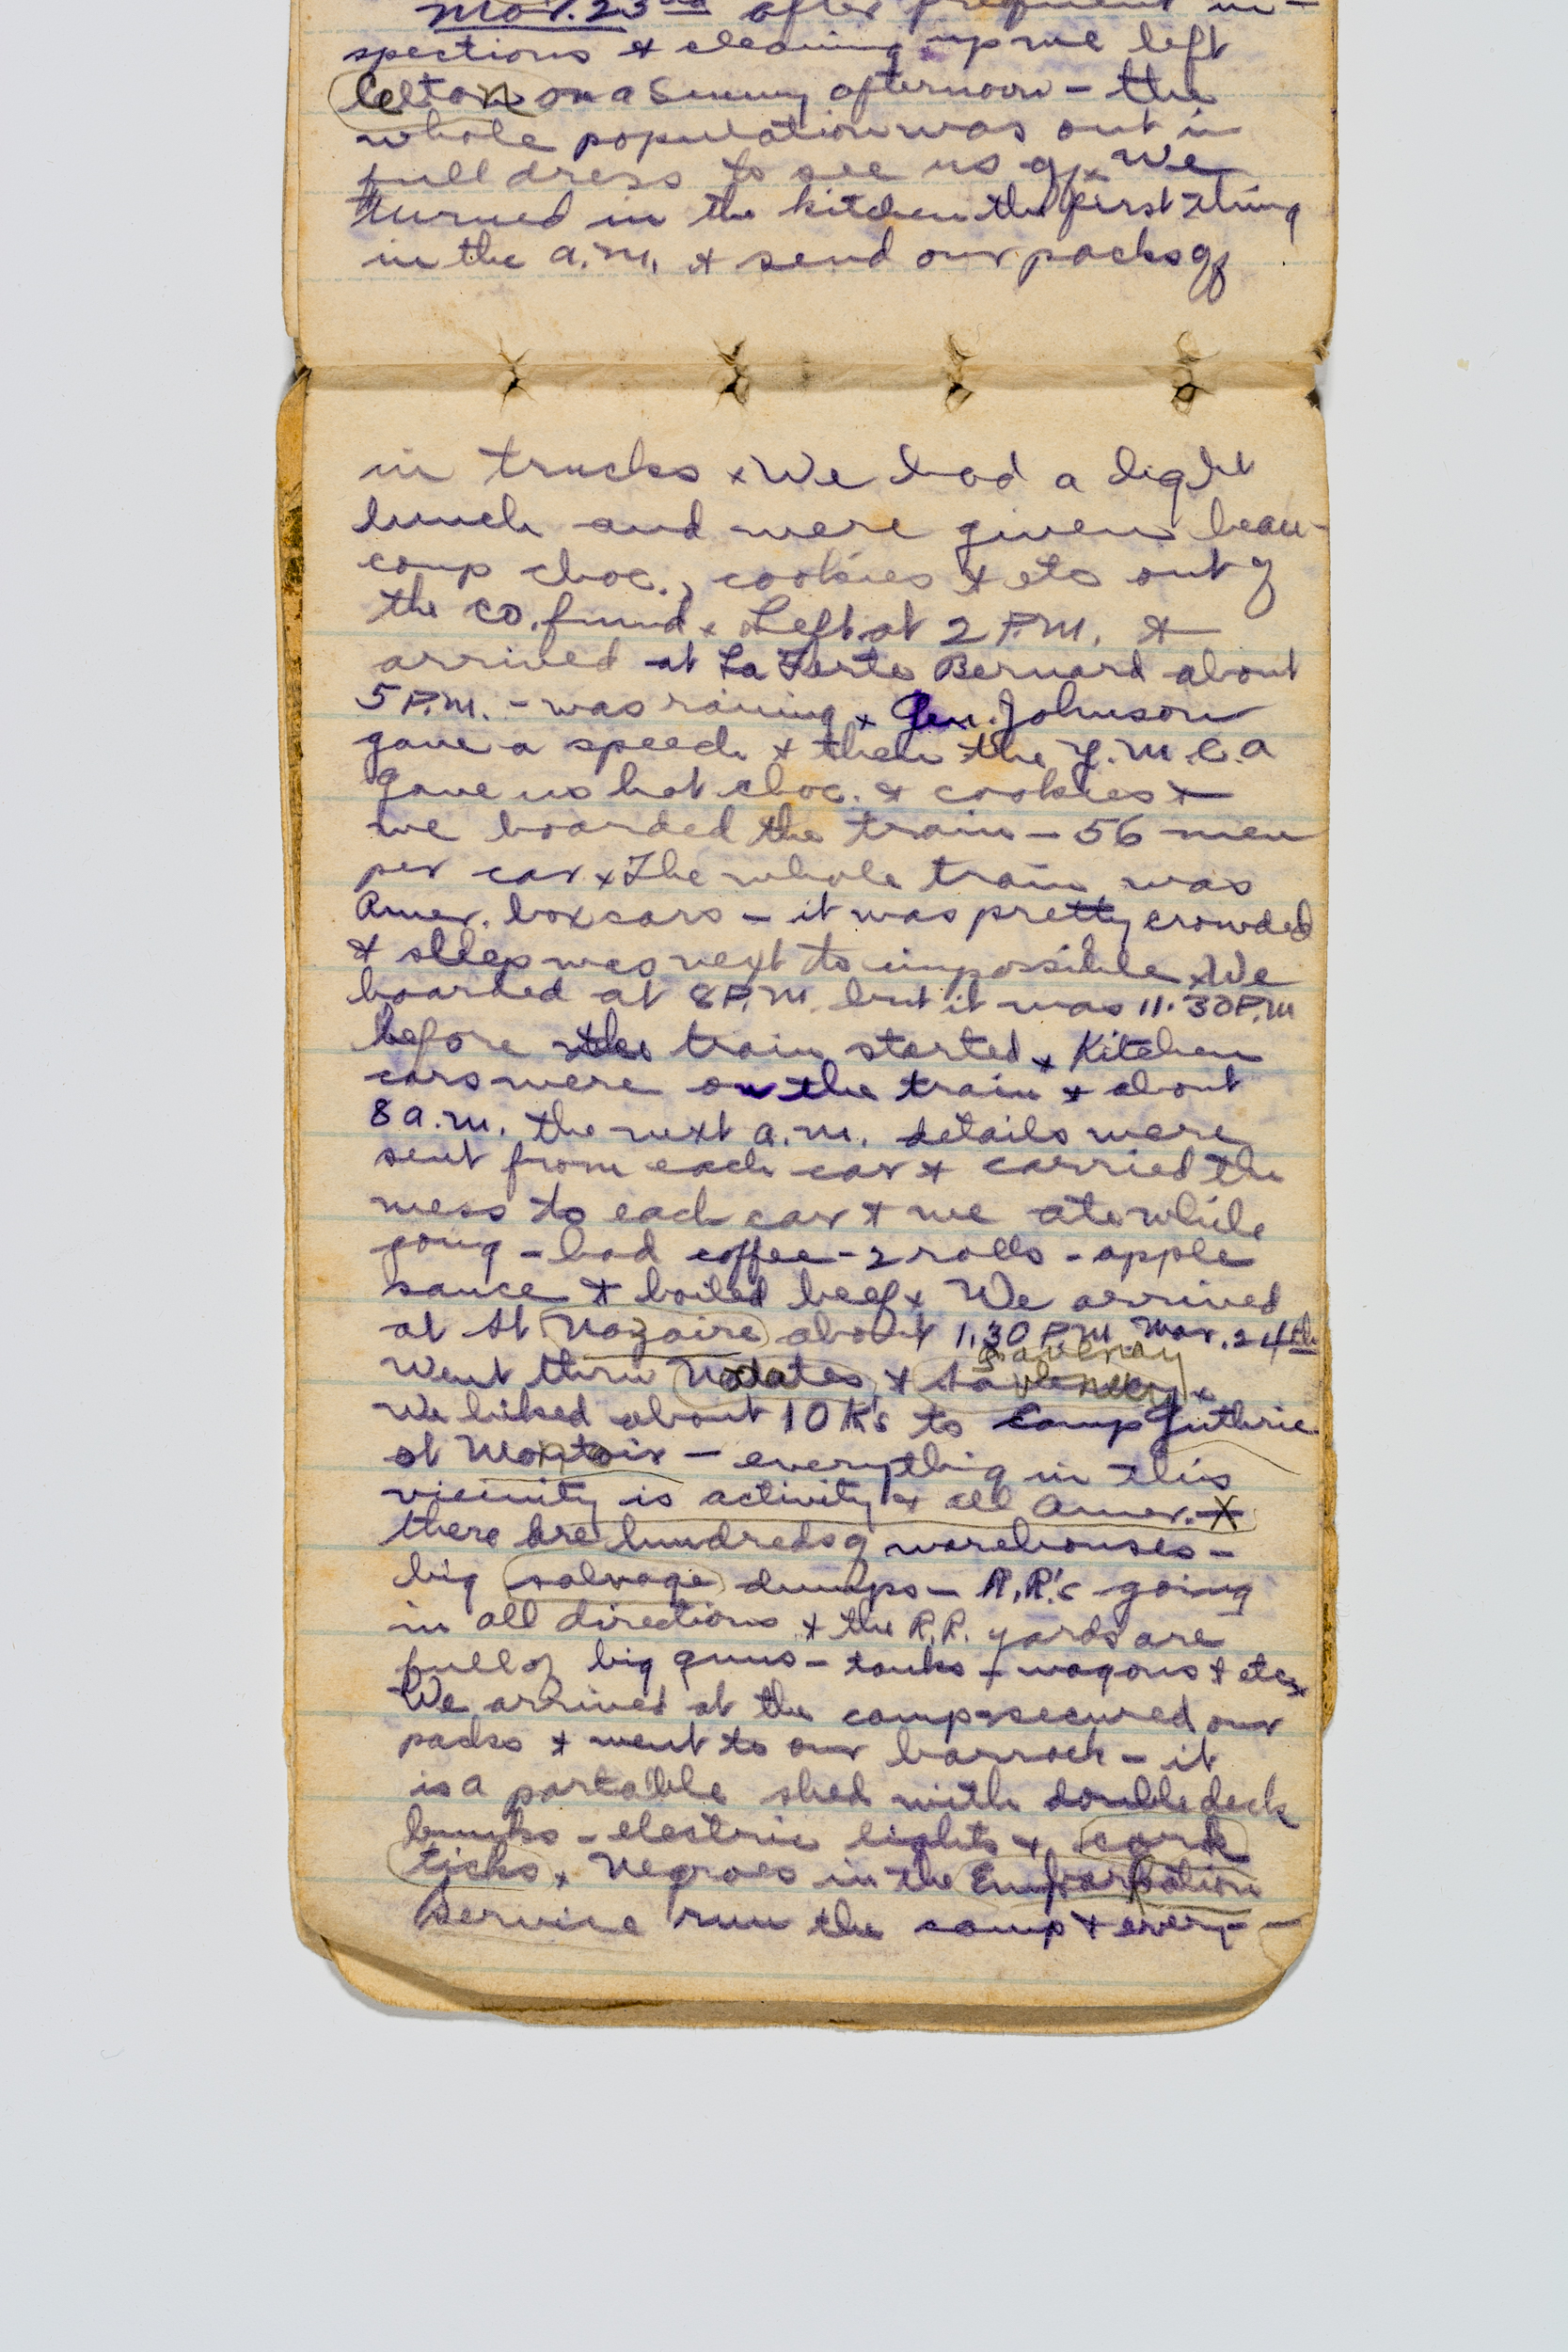 Mar. 23rd after frequent in-
spections & cleaning up we left
Celton on a Sunny afternoon - the
whole population was out in
full dress to see us off x We
turned in the kitchen the first thing
in the a.m. & send our packs off
in trucks x We had a light
lunch and were given beau-
coup choc., cookies & etc out of
the co. fund x Left at 2 P.M. &
arrived at La Ferte Bernard about
5 P.M. - was raining x Gen. Johnson
gave a speech & then the Y.M.C.A
gave us hot choc. & cookies &
we boarded the train - 56 men
per car x The whole train was
Amer. box cars - it was pretty crowded
& sleep was next to impossible x We
boarded at 8 P.M. but it was 11.30 P.M
before the train started x Kitchen
cars were on the train & about
8 a.m. the next a.m. details were
sent from each car & carried the
mess to each car & we ate while
going - had coffee - 2 rolls - apple
sauce & boiled beef x We arrived
at St Nazaire about 1.30 P.M Mar. 24th
Savenay
Went thru Nantes & Savenay x
We hiked about 10 K's to Camp Guthrie
at Montoir - everything in this
vicinity is activity & all Amer. - X
there are hundreds of warehouses -
big salvage dumps - R.R.'s going
in all directions & the R.R. yards are
full of big guns - tanks - wagons & etc x
We arrived at the camp - secured our
packs & went to our barrack - it
is a portable shed with double deck
bunks - electric lights & cork
ticks x Negroes in the Embarkation
Service run the camp & every-